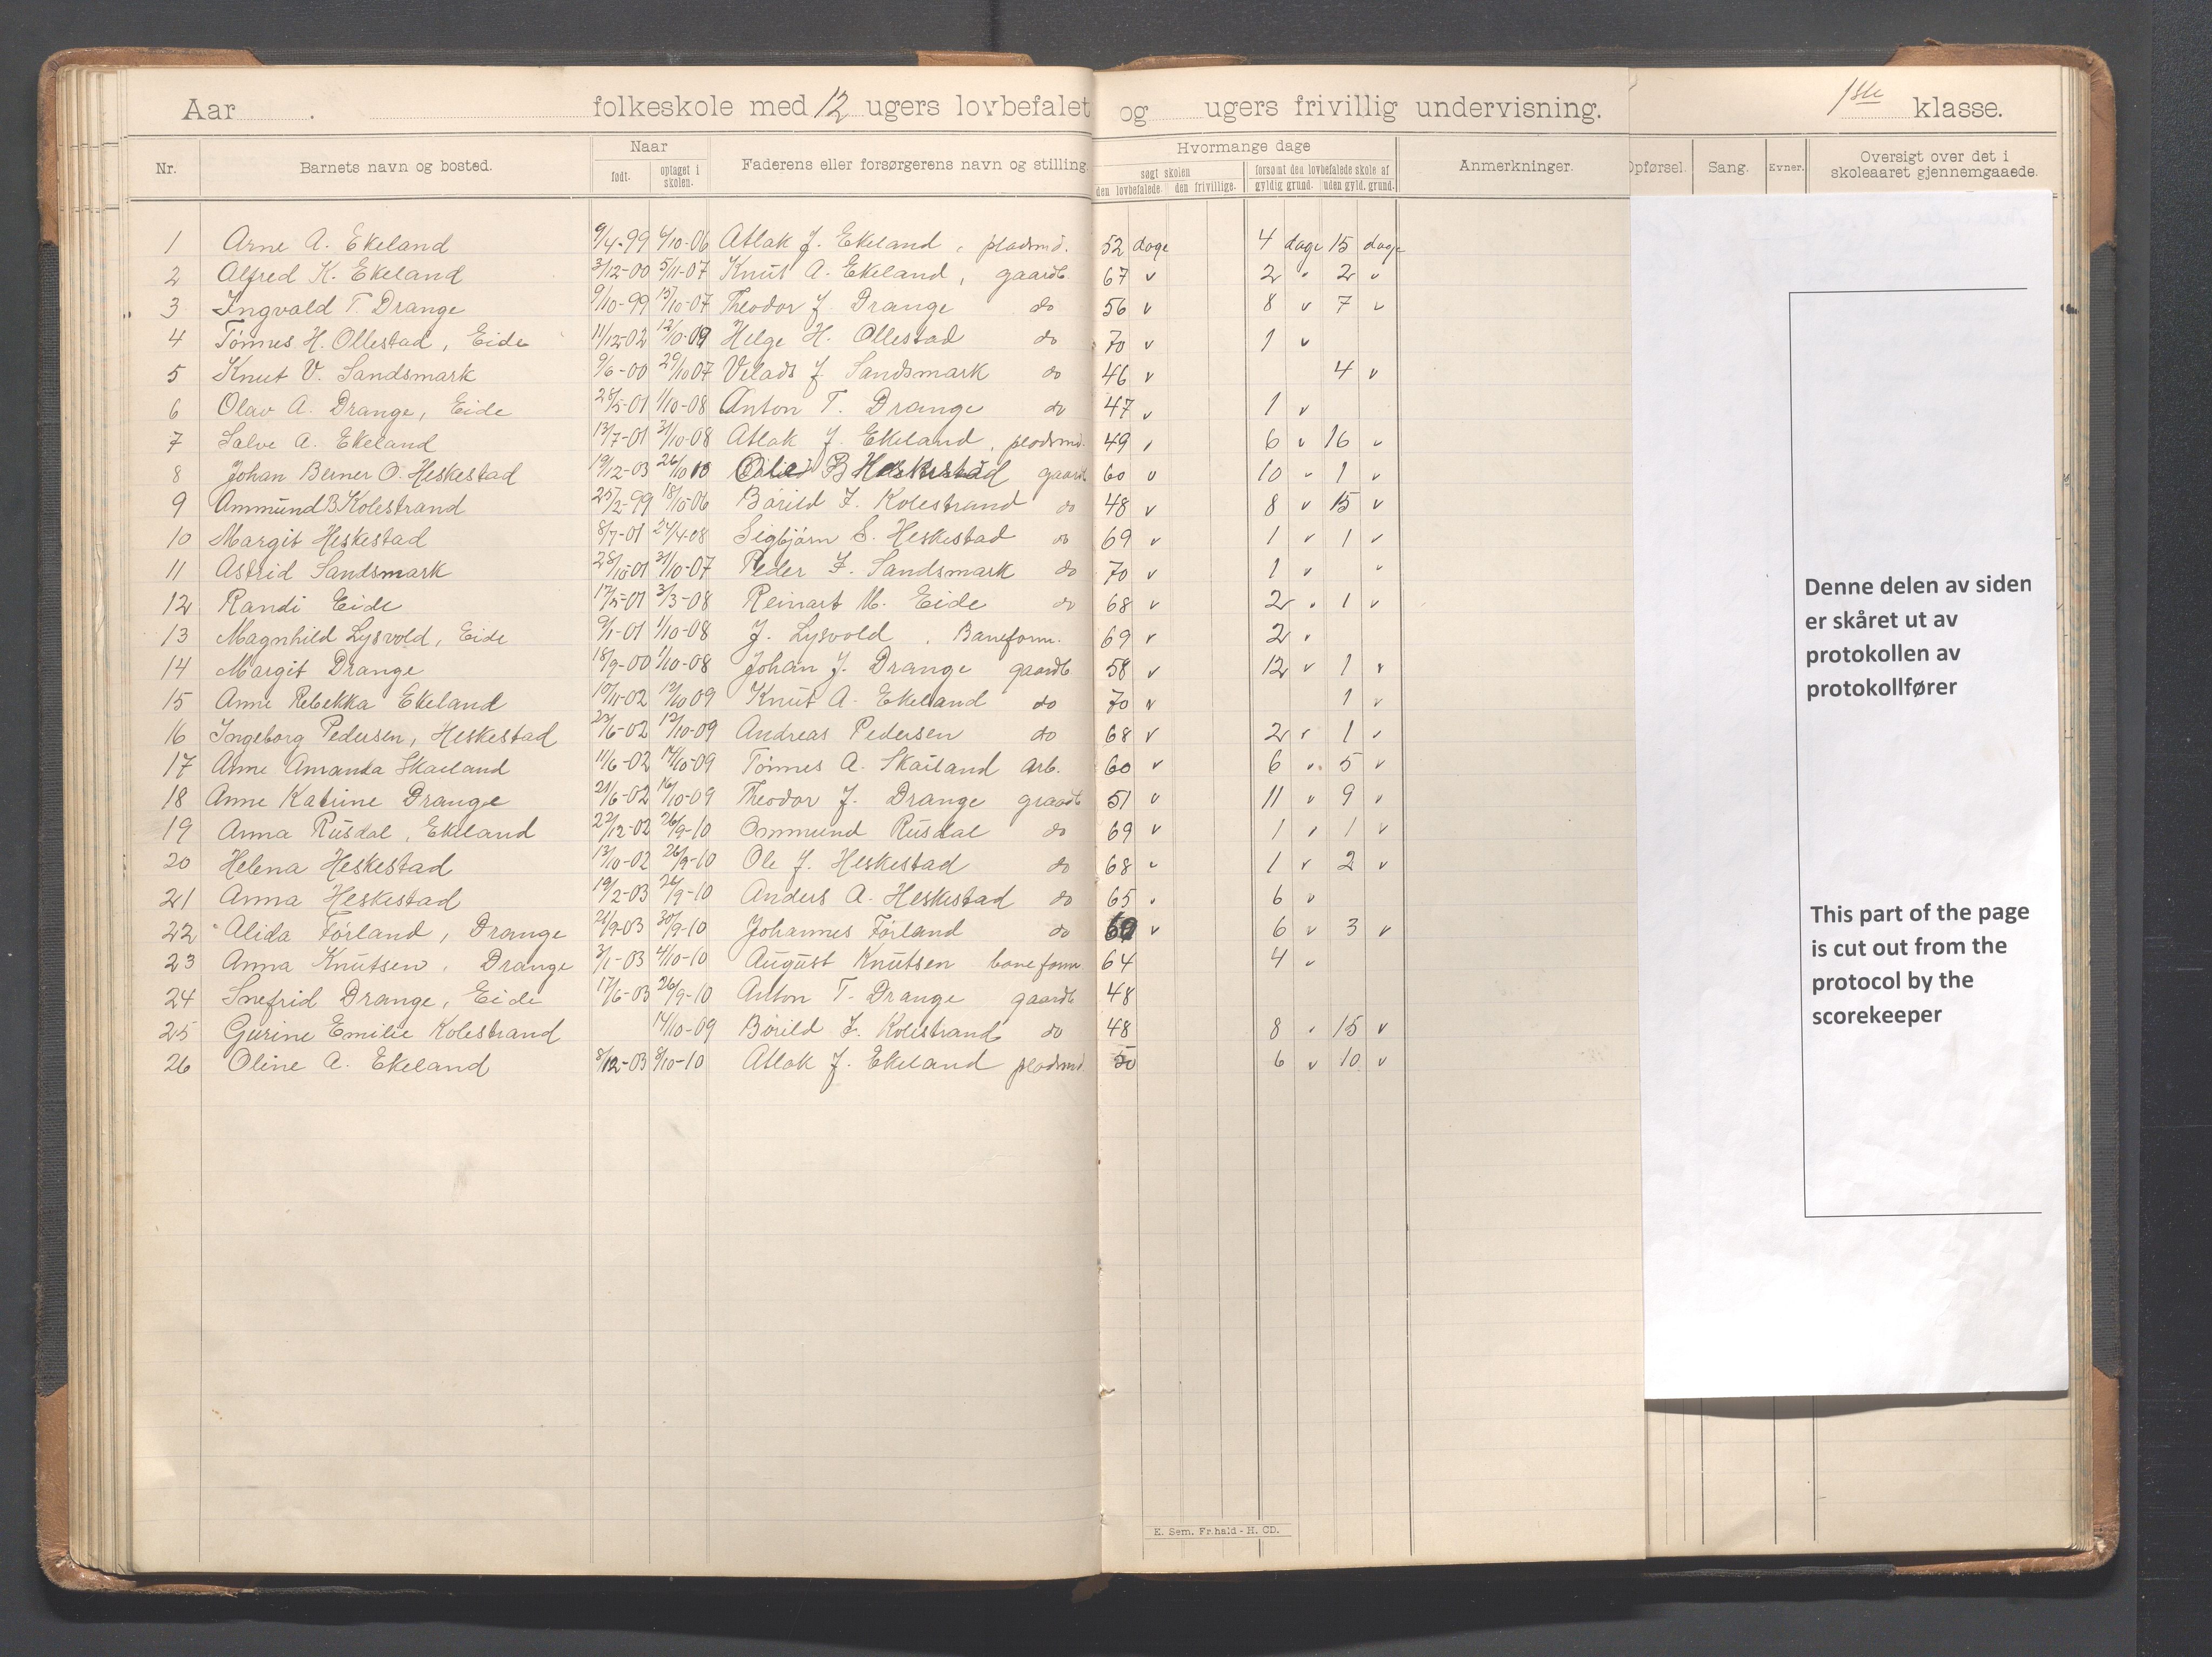 Aar . folkeskole med 12 ugers lovbefalet og ugers frivillig undervisning. 1ste klasse.
Nr. Barnets navn og bosted. Naar født. optaget i skolen. Faderens eller forsørgerens navn og stilling. Hvormange dage søgt skolen den lovbefalede. den frivillige. forsømt den lovbefalede skole af gyldig grund. uden gyld. grund. Anmerkninger. Opførsel. Sang. Evner. Oversigt over det i skoleaaret gjennemgaaede.
1 Arne A. Ekeland 9/4-99 4/10-06 Atlak J. Ekeland, pladsmd. 52 dage 4 dage 15 dage
2 Alfred K. Ekeland 3/12-00 5/11-07 Knut A. Ekeland, gaardb 67 v 2 v 2 v
3 Ingvald T. Drange 9/10-99 15/10-07 Theodor J. Drange do 56 v 8 v 7 v
4 Tönnes H. Ollestad, Eide 11/12-02 12/10-09 Helge H. Ollestad do 70 v 1 v
5 Knut V. Sandsmark 9/6-00 29/10 07 Velads J Sandsmark do 46 v 4 v
6 Olav A. Drange, Eide 28/5-01 1/10-08 Anton T. Drange do 47 v 1 v
7 Salve A. Ekeland 13/7-01 31/10-08 Atlak J. Ekeland, pladsmd. 49 v 6 v 16 v
8 Johan Berner O. Heskestad 19/12-03 26/10 10 Heskestad gaardb 60 v 10 v 1 v
9 Ommund B Kolestrand 25/2-99 18/10-06 Bårild F. Kolestrand do 48 v 8 v 15 v
10 Margit Heskestad 8/7-01 24/4-08 Sigbjörn S. Heskestad do 69 v 1 v 1 v
11 Astrid Sandsmark 28/10-01 31/10-07 Peder F. Sandsmark do 70 v 1 v
12 Randi Eide 17/5-01 3/3-08 Reinart M. Eide do 68 v 2 v 1 v
13 Magnhild Lysvold, Eide 9/1-01 1/10-08 J. Lysvold, Baneform. 69 v 2 v
14 Margit Drange 18/9-00 1/10-08 Johan J. Drange gaardb 58 v 12 v 1 v
15 Anne Rebekka Ekeland 10/11-02 12/10 09 Knut A. Ekeland do 70 v 1 v
16 Ingeborg Pedersen, Heskestad 23/6-02 12/10-09 Andreas Pedersen do 68 v 2 v 1 v
17 Anne Amanda Skailand 11/6-02 14/10-09 Tönnes A. Skailand arb. 60 v 6 v 5 v
18 Anne Katrine Drange 21/6-02 16/10-09 Theodor J. Drange graadb 51 v 11 v 9 v
19 Anna Rusdal, Ekeland 22/12-02 26/9-10 Ommund Rusdal do 69 v 1 v 1 v
20 Helena Heskestad 13/10-02 26/9-10 Ole J. Heskestad do 68 v 1 v 2 v
21 Anna Heskestad 19/2-03 26/9-10 Anders A. Heskestad do 65 v 6 v
22 Alida Förland, Drange 21/9-03 30/9-10 Johannes Förland do v 6 v 3 v
23 Anna Knutsen, Drange 3/1-03 4/10-10 August Knutsen baneform. 64 4 v
24 Snefrid Drange, Eide 17/6-03 26/9-10 Anton T. Drange gaardb 48
25 Gurine Emilie Kolestrand 14/10-09 Börild F. Kolestrand do 48 8 v 15 v
26 Oline A. Ekeland 8/12-03 8/10-10 Atlak J. Ekeland pladsmd 50 6 v 10 v
E. Sem. Fr.hald - H. CD.
Denne delen av siden
er skåret ut av
protokollen av
protokollfører
This part of the page
is cut out from the
protocol by the
scorekeeper